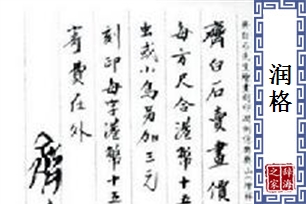 润格
辞海之家
齊白石賣畫價
每方尺合港幣十五
虫或小鳥另加三元
刻印每字港幣十五
寄費在外
齊